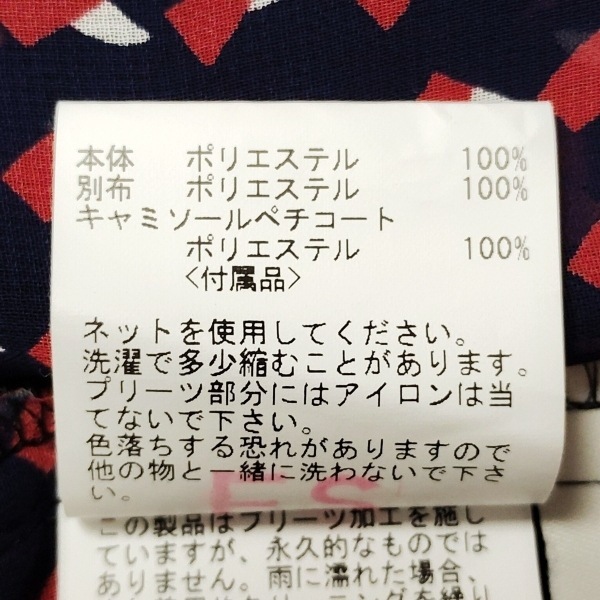 本体 ポリエステル 100%
別布 ポリエステル 100%
キャミソールペチコート
ポリエステル 100%
<付属品>
ネットを使用してください。
洗濯で多少縮むことがあります。
プリーツ部分にはアイロンは当
てないで下さい。
色落ちする恐れがありますので
他の物と一緒に洗わないで下さ
い。
この製品はプリーツ加工を施し
ていますが、永久的なものでは
ありません。雨に濡れた場合、